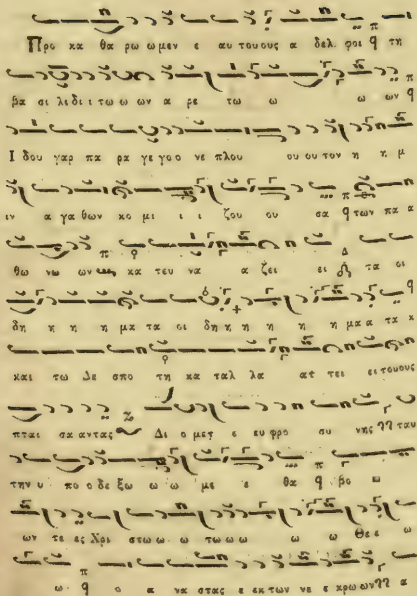 Προ κα θα ρω ω μεν ε αυ τους ους α δελ φοι τη
βα σι λι δι ι τω ω ων α ρε τω ω ω ων
Ι δου γαρ πα ρα γε γο ο νε πλου ου ου τον η η μ
ιν α γα θων κο μι ι ι ζου ου σα των πα α
θω νω ων κα τευ να α ζει ει τα οι
δη η η η μα τα οι δη η η η η η μα α τα κ
και τω Δε σπο τη κα ταλ λα ατ τει ει τους ους
πται σα αντας Δι ο μετ ε ευ φρο συ νης ταυ
την υ πο ο δε ξω ω ω με ε θα βο ω
ων τε ες Χρι στω ω ω τω ω ω ω ω Θε ε ω
ω ο α να στας ε εκ των νε ε κρω ων α